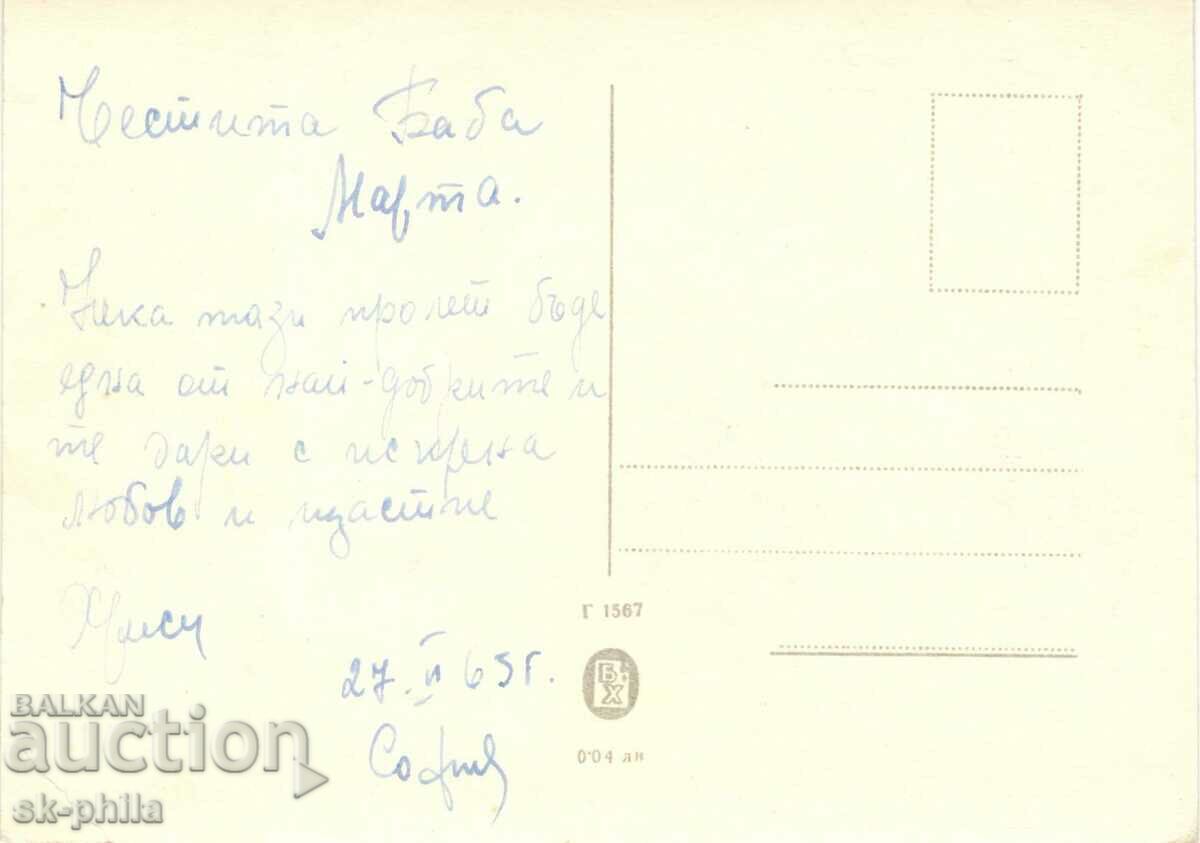 Честита Баба
Марта.
Нека тази пролет бъде
една от най-добрите и
те дари с искрена
любов и щастие
Хриси
27. II 65 г.
София
Г 1567
БХ
0·04 лв
BALKAN
auction
sk-phila